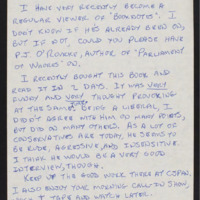 I HAVE VERY RECENTLY BECOME A
REGULAR VIEWER OF "BOOKNOTES". I
DON'T KNOW IF HE'S ALREADY BEEN ON,
BUT IF NOT COULD YOU PLEASE HAVE
P.J. O'ROURKE, AUTHOR OF "PARLIAMENT
OF WHORES" ON.
I RECENTLY BOUGHT THIS BOOK AND
READ IT IN 2 DAYS. IT WAS VERY
FUNNY AND VERY THOUGHT PROVOKING
AT THE SAME. BEING A LIBERAL, I
DIDN'T AGREE WITH HIM ON MANY POINTS,
BUT DID ON MANY OTHERS. AS A LOT OF
CONSERVATIVES ARE TODAY, HE SEEMS TO
BE RUDE, AGRESSIVE, AND INSENSITIVE.
I THINK HE WOULD BE A VERY GOOD
INTERVIEW, THOUGH.
KEEP UP THE GOOD WORK THERE AT CSPAN.
I ALSO ENJOY YOUR MORNING CALL-IN SHOW,
I TAPE AND WATCH LATER.